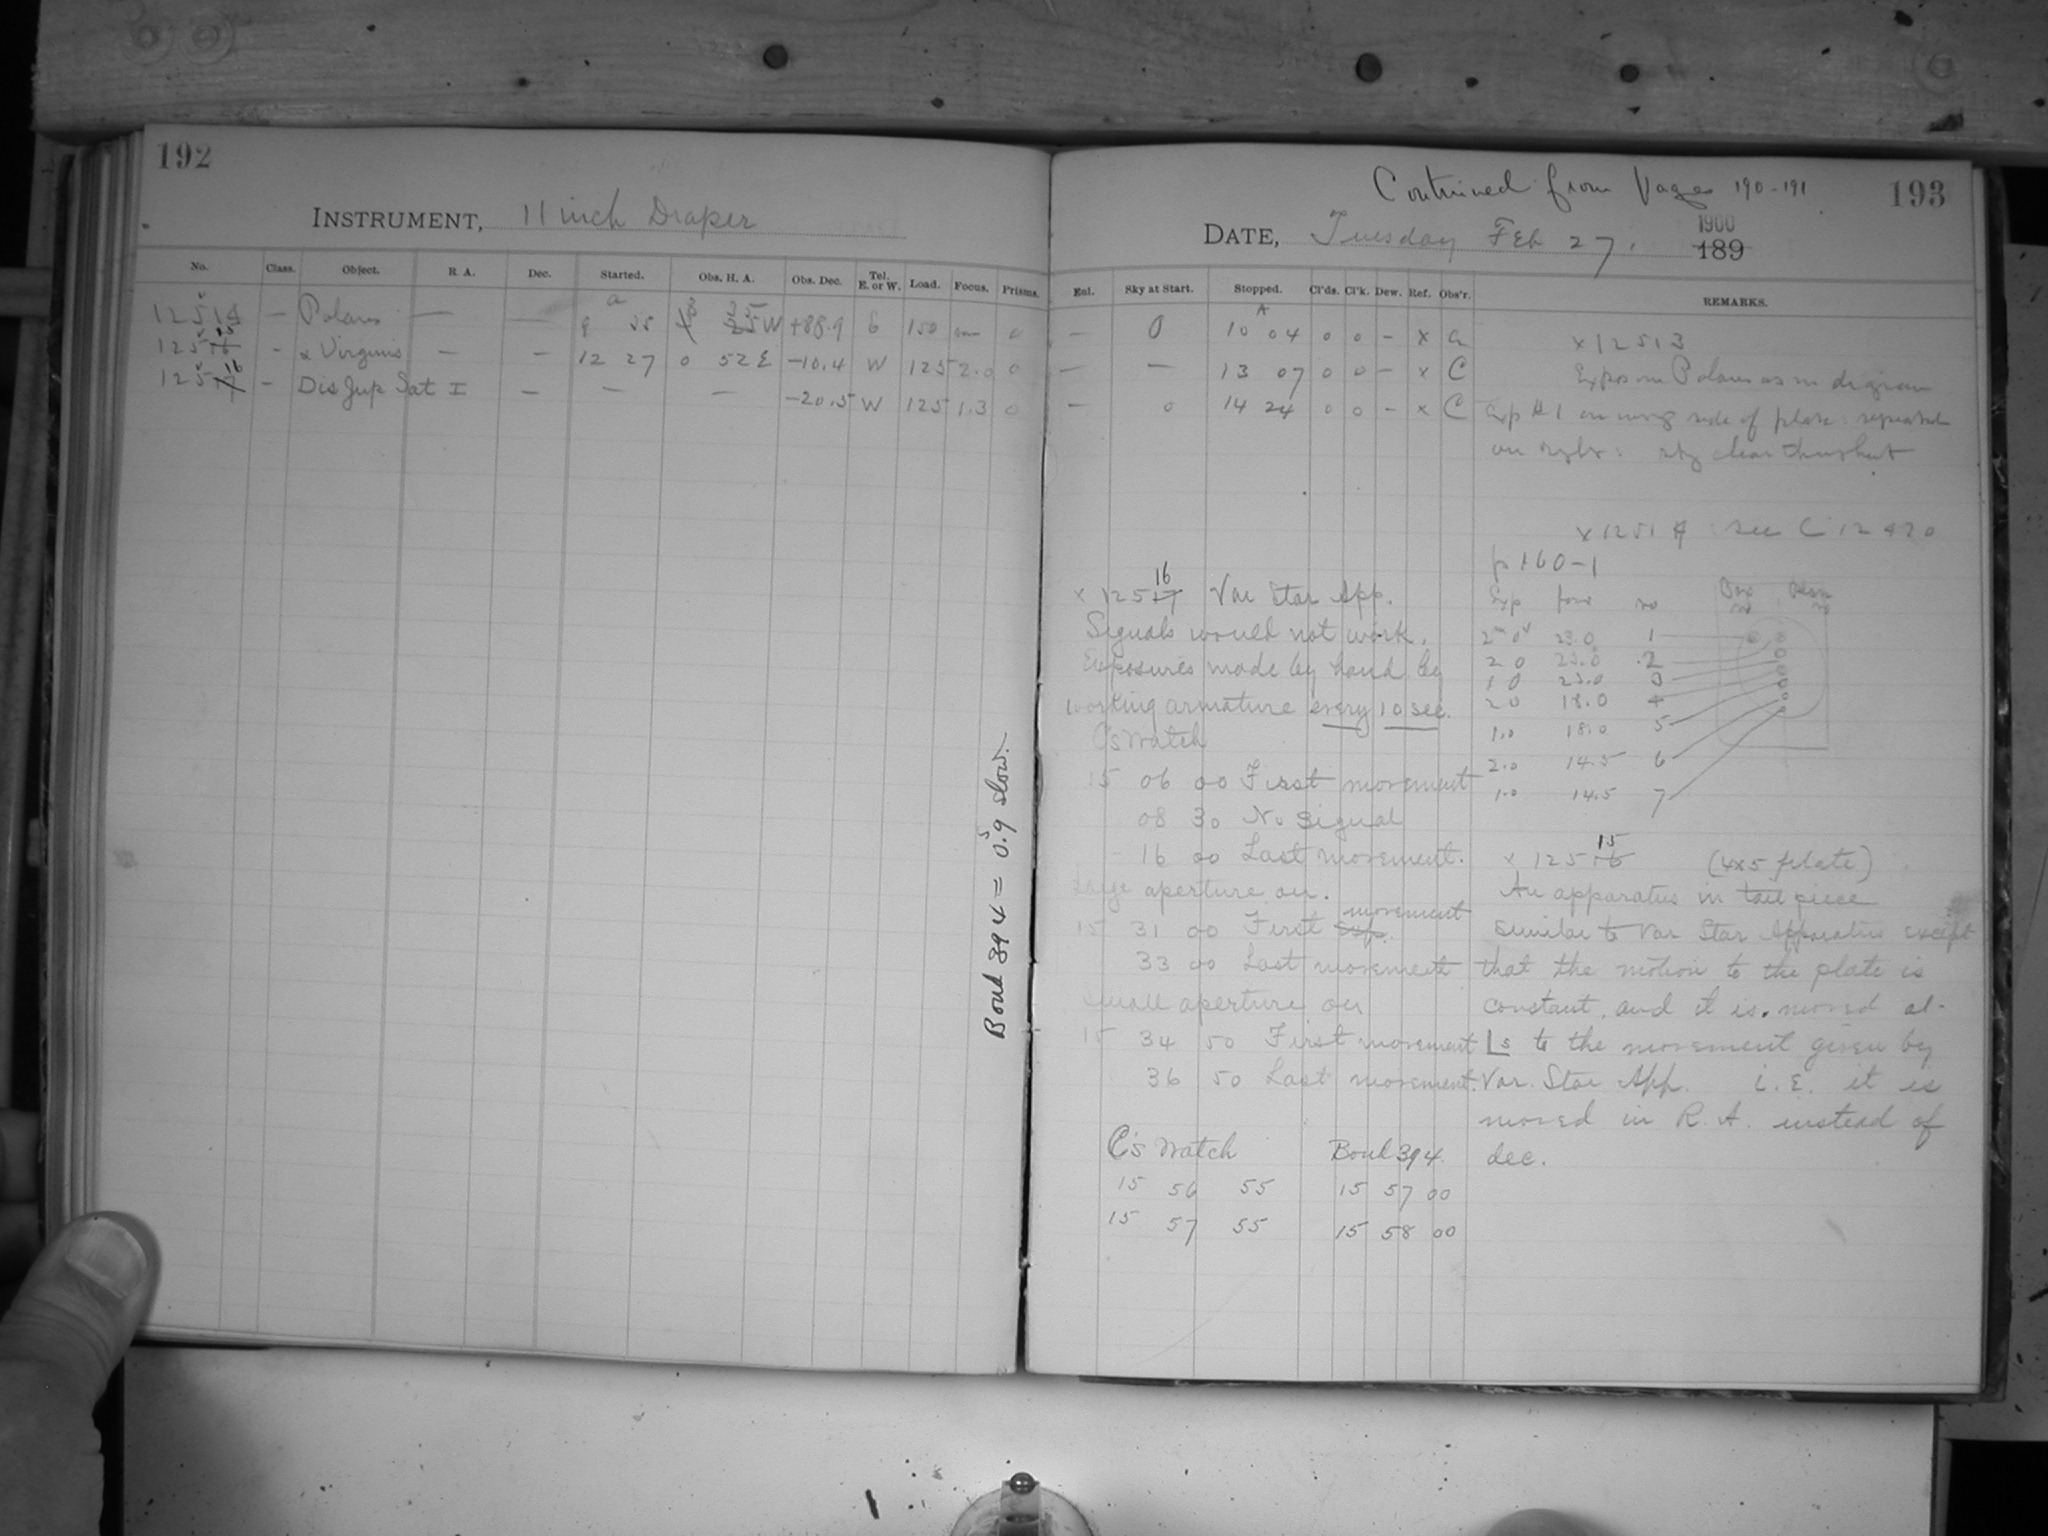 192
INSTRUMENT, 11 inch Draper
No. Class. Object. R. A. Dec. Started. Obs. H. A. Obs. Dec. Tel. E. or W. Load. Focus. Prisms.
12514 — Polaris — — 9 55 +88.9 E 150 0
125 15 - α Virginis — — 12 27 0 52 E -10.4 W 125 2.0 0
125 16 - Dis Jup Sat I — — — -20.5 W 125 1.3 0
Bond 394 = 0.9 slow.
Continued from Pages 190-191
193
DATE, Tuesday Feb 27. 1900
189
Enl. Sky at Start. Stopped. Cl'ds. Cl'k. Dew. Ref. Obs'r. REMARKS.
— 0 10 04 0 0 - x a
— — 13 07 0 0 - x C
— 0 14 24 0 0 - x C
x 12513
Expos on Polaris as in diagram
Exp # 1 on wrong side of plate: repeated
on right: sky clear thruout
x 12514 see C 12420
p 160-1
Exp no
2 0 23.0 1
2 0 23.0 2
1 0 23.0 3
2 0 18.0 4
1.0 18.0 5
2.0 14.5 6
1.0 14.5 7
x 125 16 Var Star App.
Signals would not work.
Exposures made by hand by
working armature every 10 sec.
C's Watch
15 06 00 First movement
08 30 No signal
16 00 Last movement.
Large aperture on.
15 31 00 First movement
33 00 Last movement
Small aperture on
15 34 50 First movement
36 50 Last movement.
C's Watch Bond 394
15 56 55 15 57 00
15 57 55 15 58 00
x 125 15 (4x5 plate)
An apparatus in tail piece
similar to Var Star Apparatus except
that the motion to the plate is
constant, and it is moved at
Ls to the movement given by
Var. Star App. i.e. it is
moved in R.A. instead of
dec.